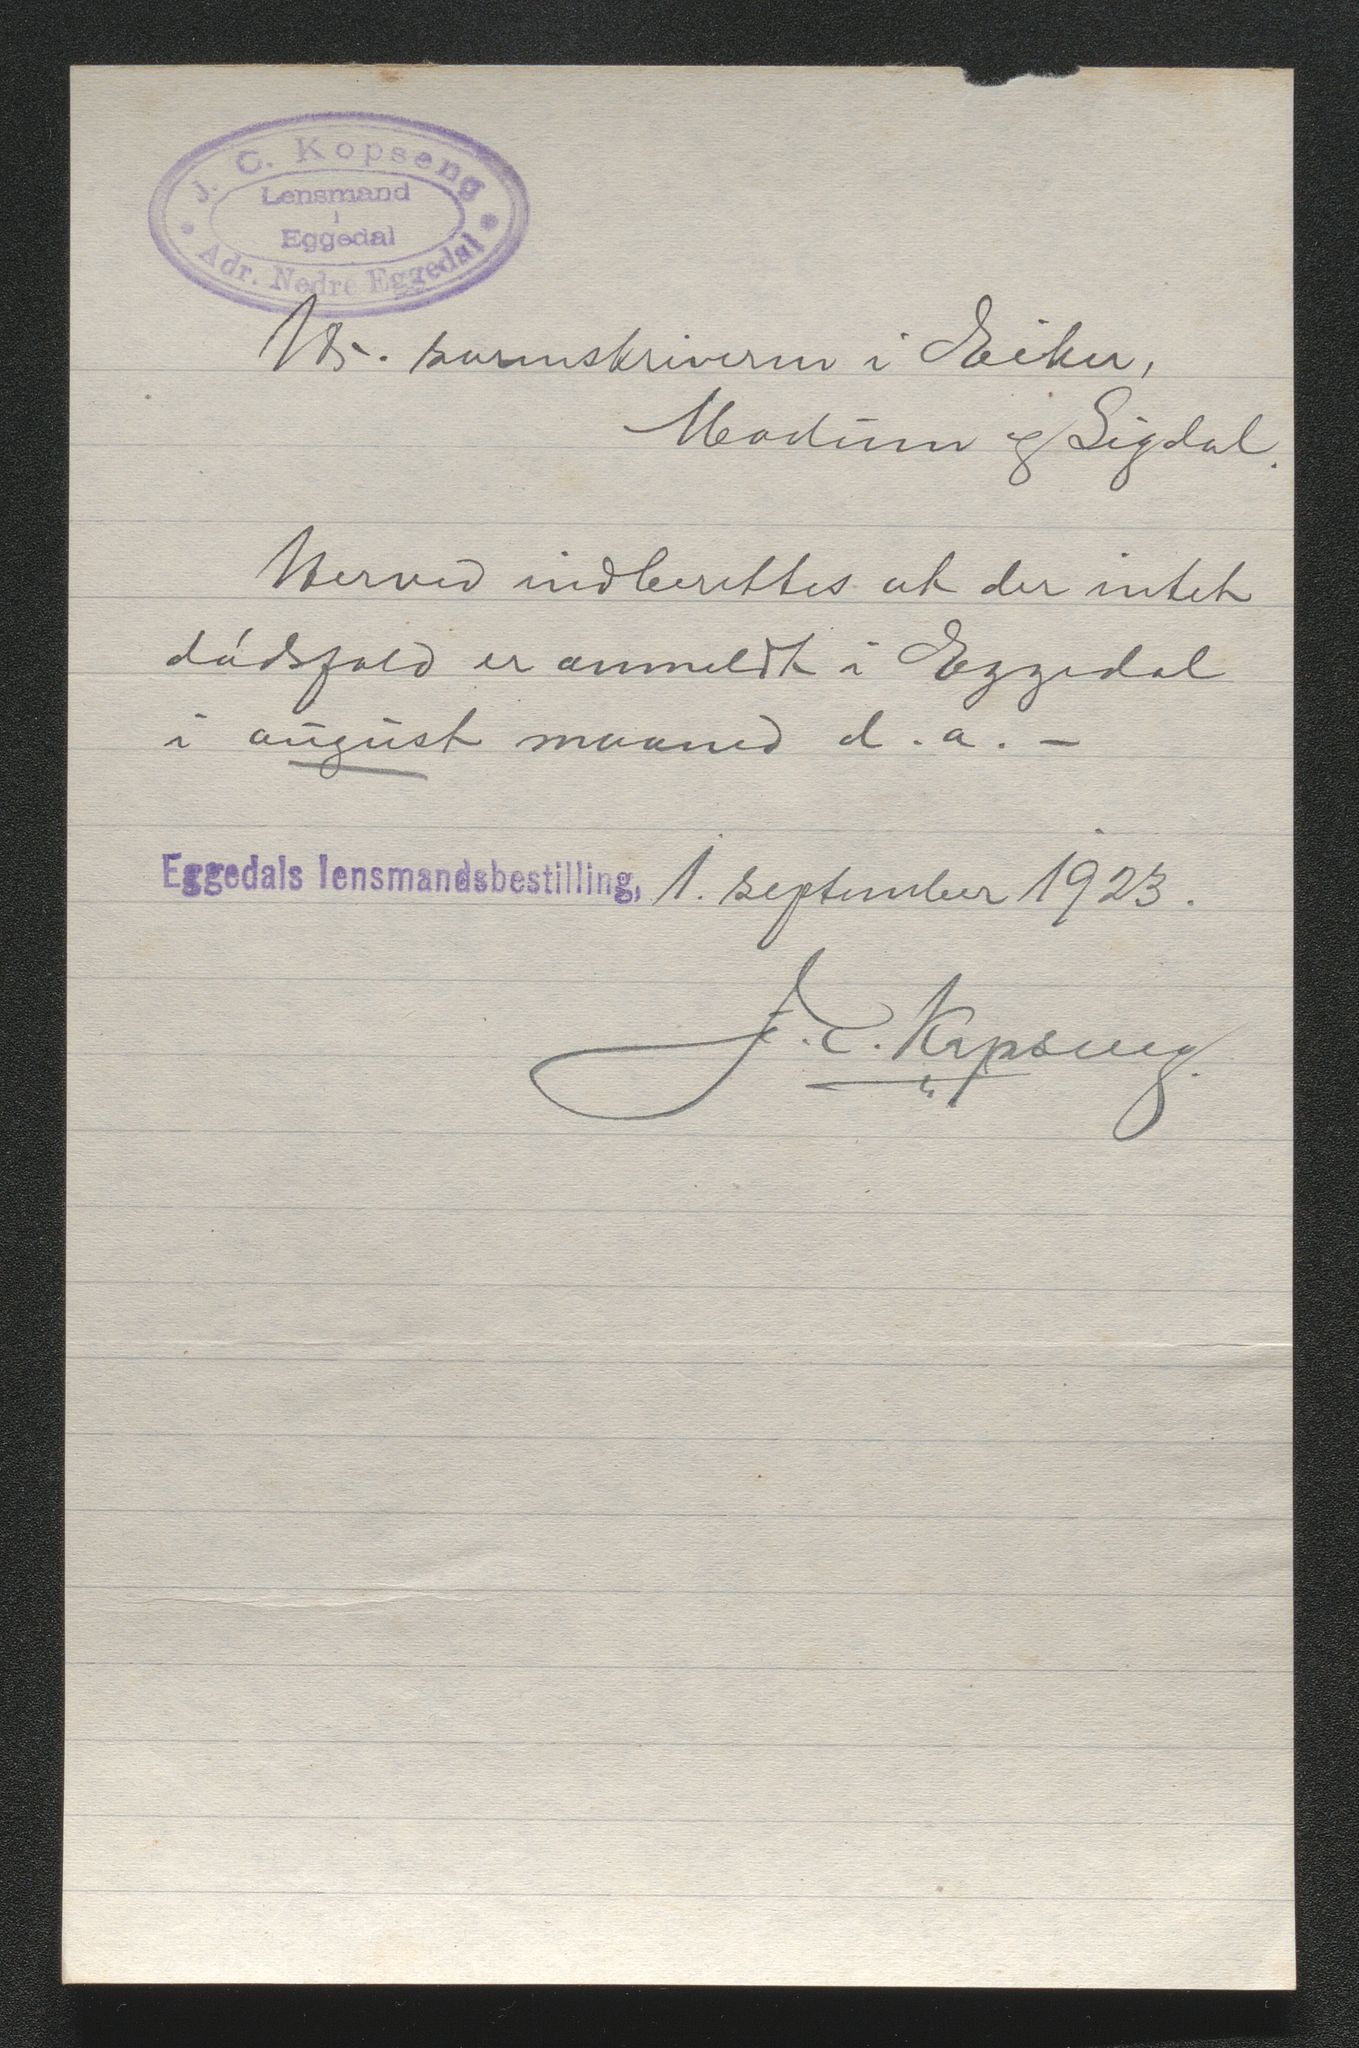 J. C. Kopseng
Lensmand
i
Eggedal
Adr. Nedre Eggedal
Hr. sorenskriveren i Eiker,
Modum og Sigdal.
Herved indberettes at der intet
dødsfald er anmeldt i Eggedal
i august maaned d. a. -
Eggedals lensmandsbestilling, 1. september 1923.
J. C. Kopseng.